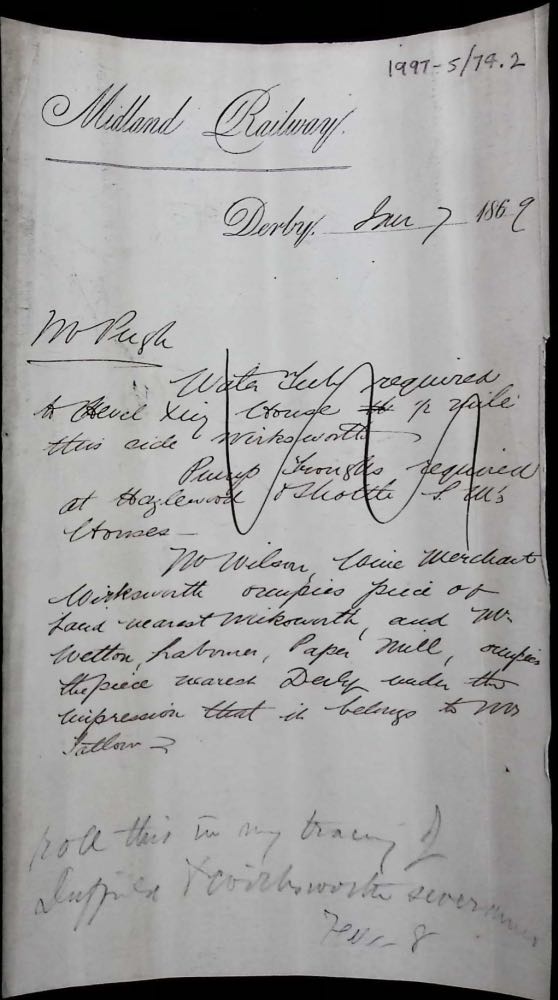 1997-5/74.2
Midland Railway.
Derby. Jan 7 1869
Mr Pugh
Water Tub required
to Level Xing House ½ mile
this side Wirksworth
Pump Troughs required
at Hazlewood & Shottle S. M's
Houses —
Mr Wilson, Wine Merchant
Wirksworth occupies piece of
land nearest Wirksworth, and Mr
Wetton, Labourer, Paper Mill, occupies
the piece nearest Derby under the
impression that it belongs to Mrs
Tatlow
roll this in my tracing of
Duffield & Wirksworth severances
8